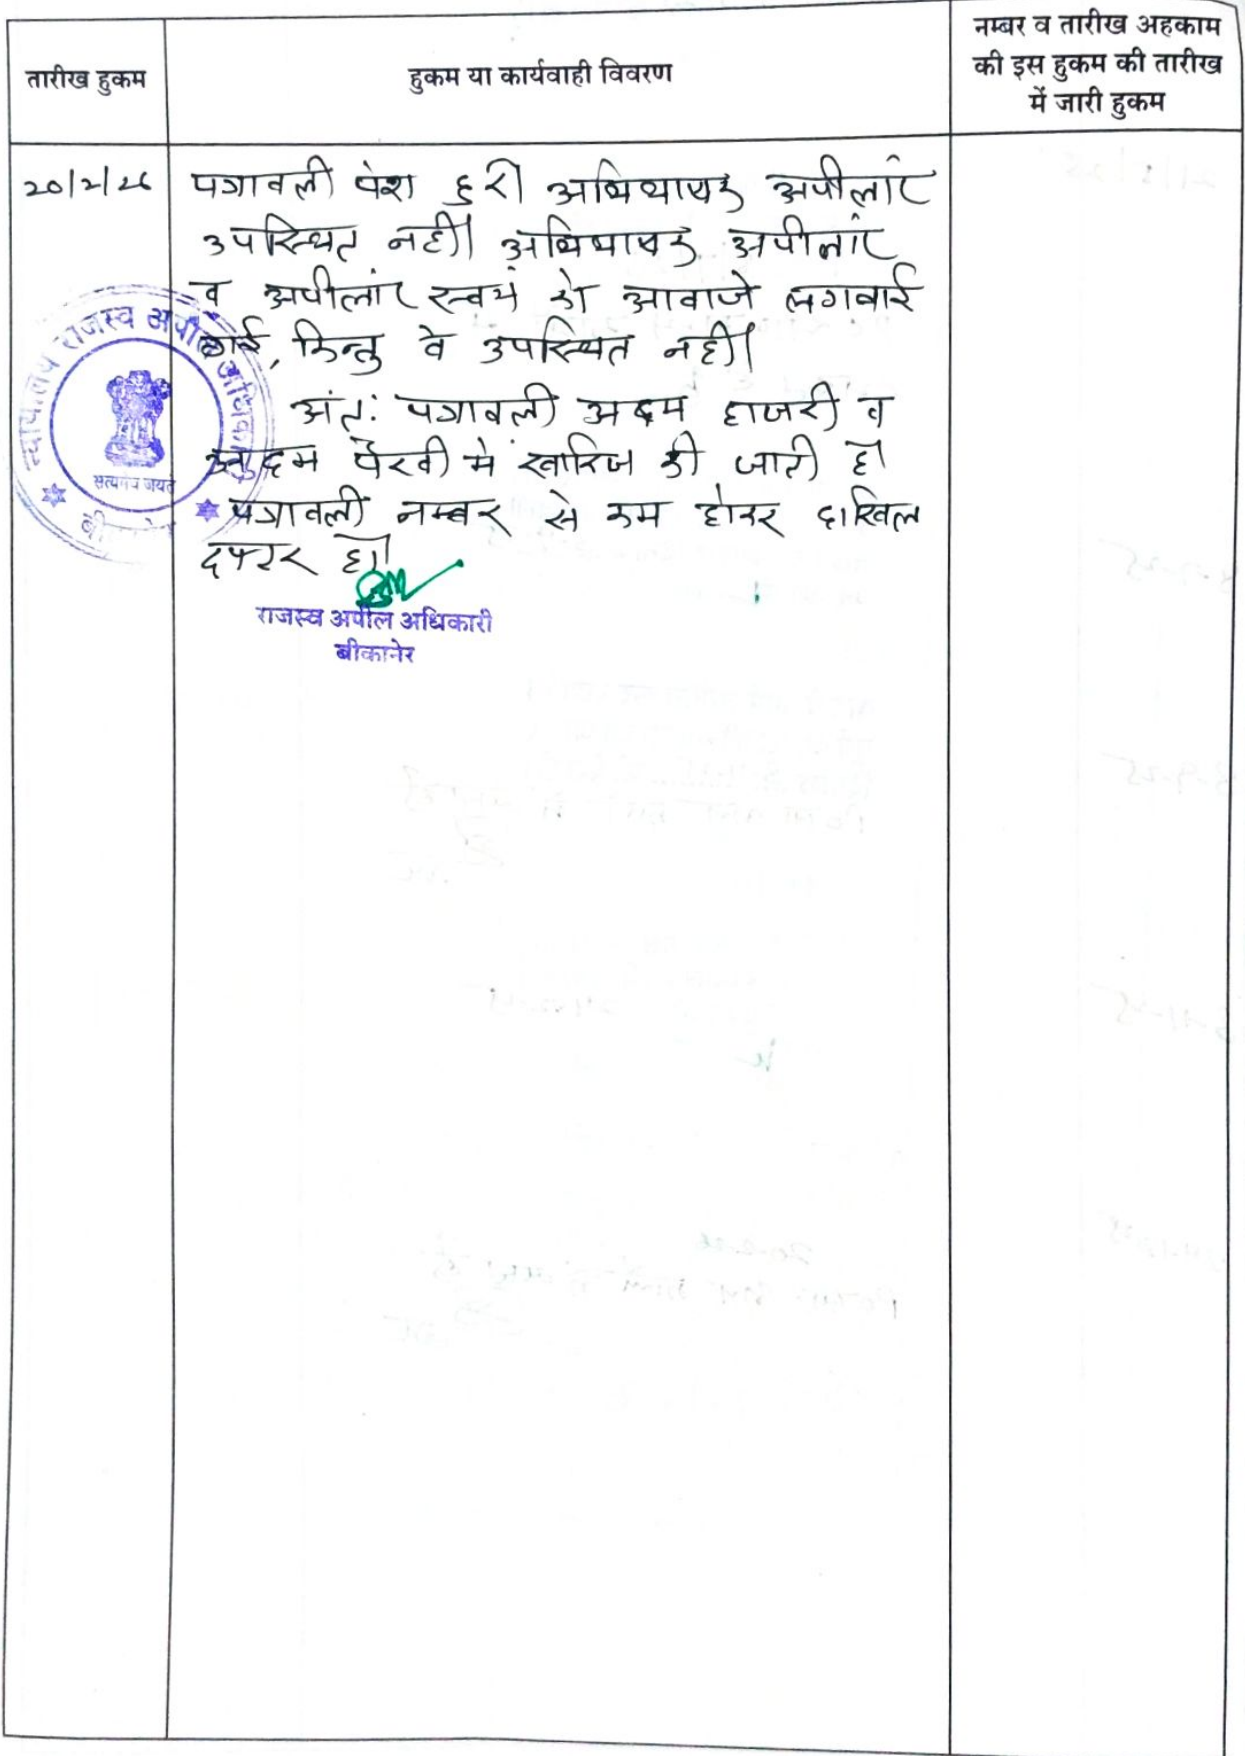 तारीख हुकम
हुकम या कार्यवाही विवरण
नम्बर व तारीख अहकाम
की इस हुकम की तारीख
में जारी हुकम
20/2/26
पत्रावली पेश हुई। अभिभाषक अपीलांट
उपस्थित नहीं। अभिभाषक अपीलांट
व अपीलांट स्वयं को आवाजे लगवाई
गई, किन्तु वे उपस्थित नहीं।
अंत: पत्रावली अदम हाजरी व
अदम पैरवी में खारिज की जाती है।
पत्रावली नम्बर से कम होकर दाखिल
दफ्तर हो।
राजस्व अपील अधिकारी
बीकानेर
न्यायालय राजस्व अपील अधिकारी
सत्यमेव जयते
बीकानेर